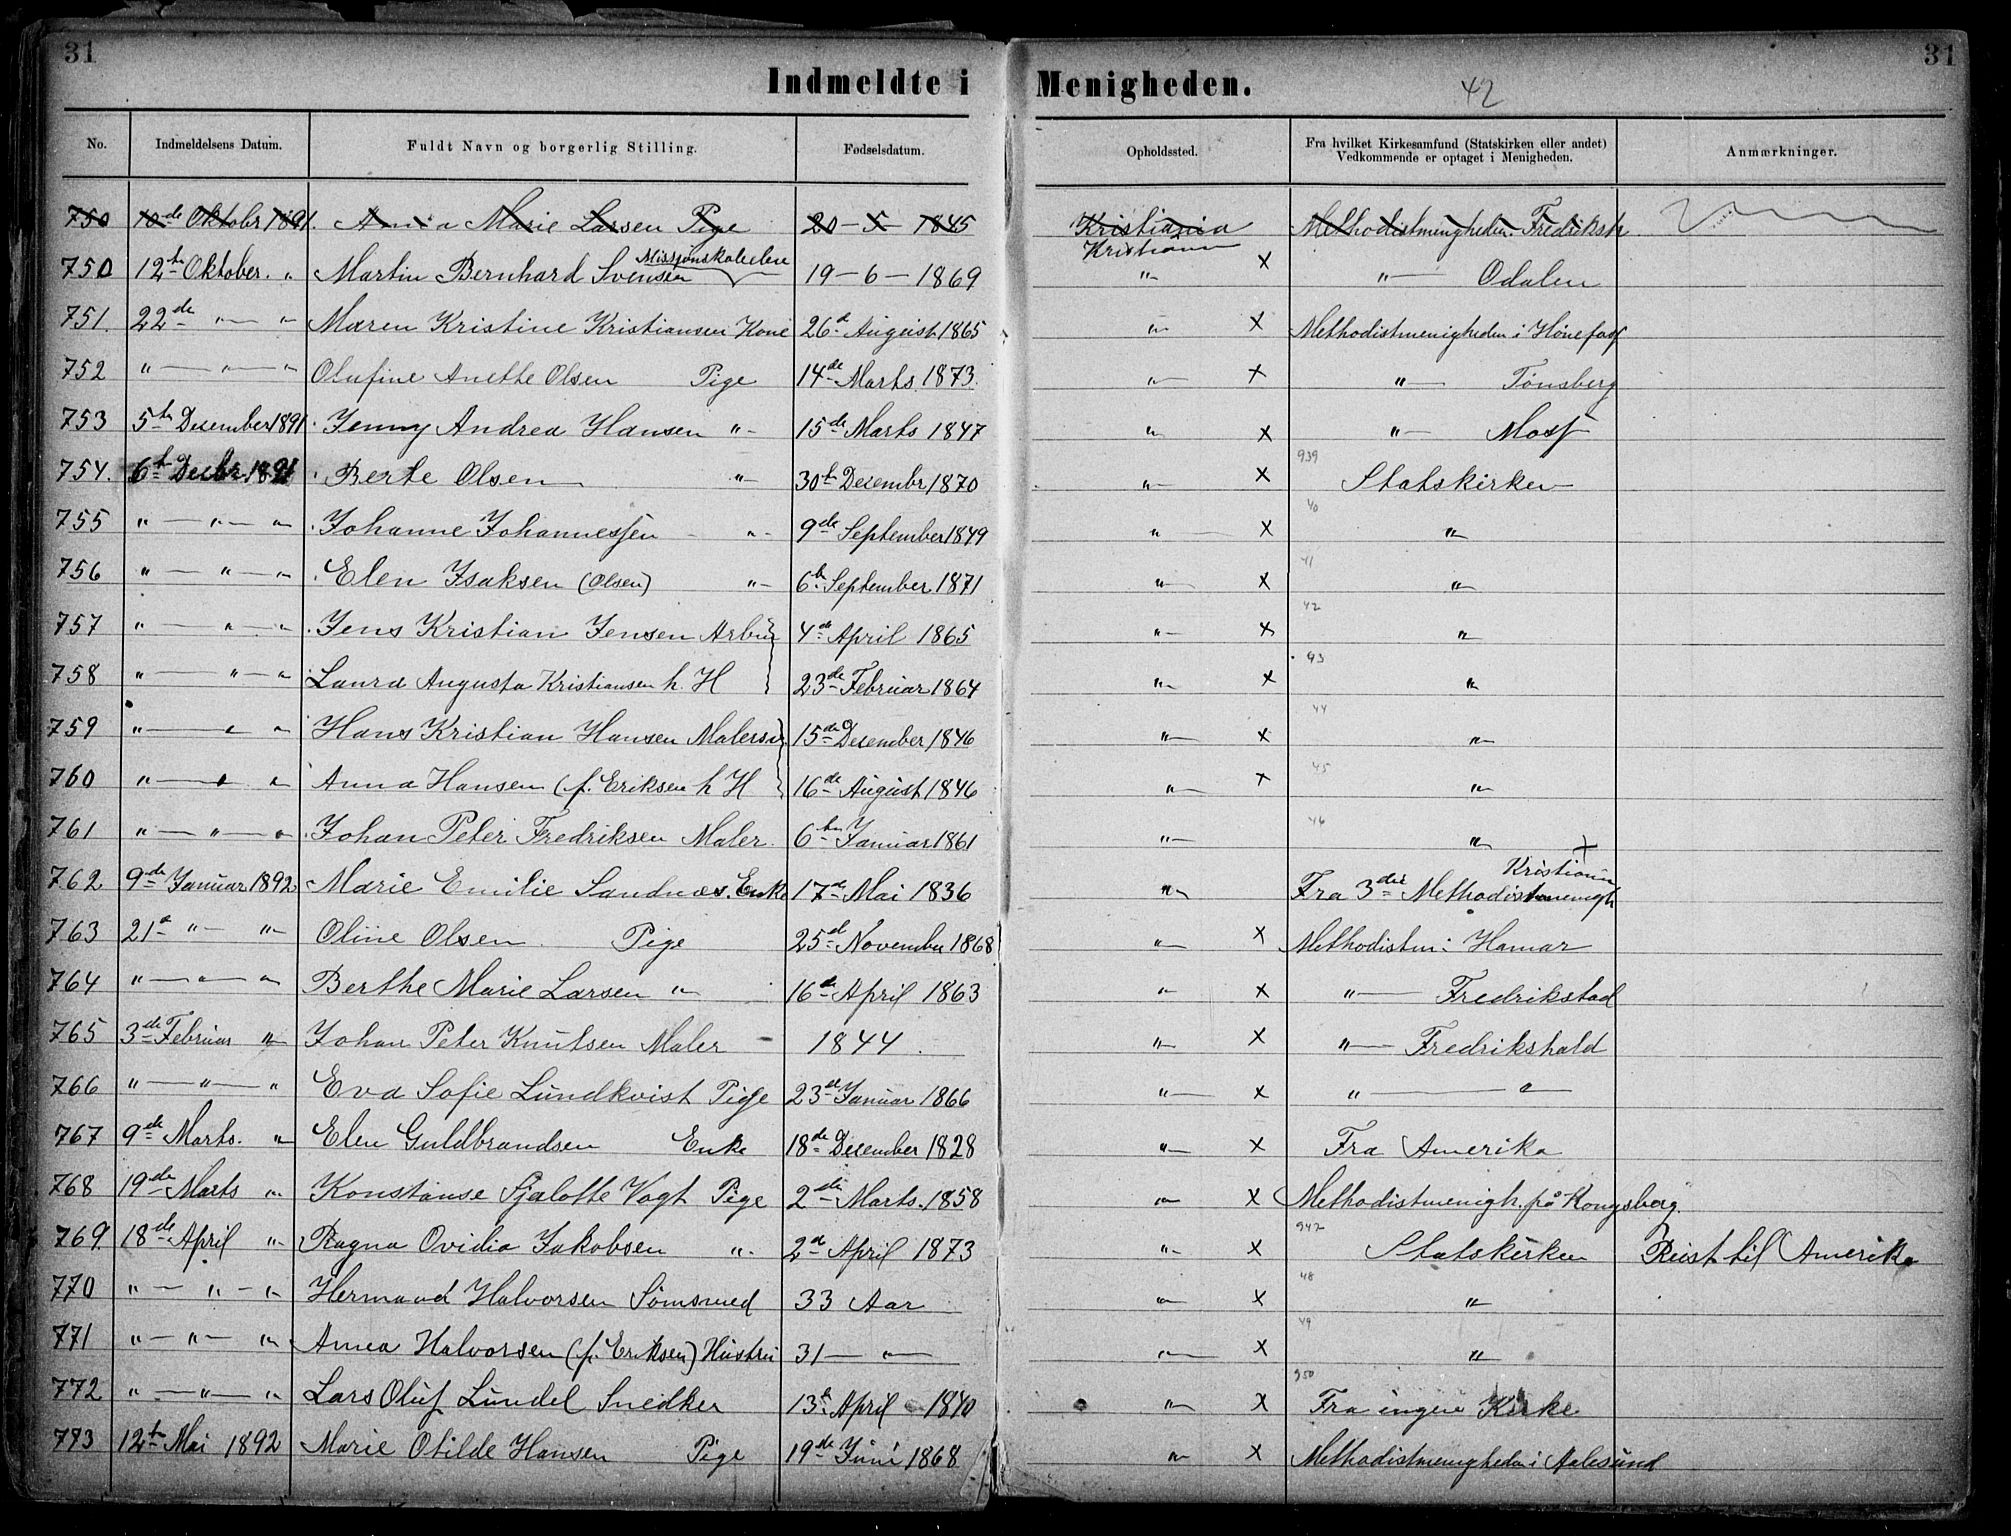 31 31
Indmeldte i Menigheden. 42
No. Indmeldelsens Datum. Fuldt Navn og borgerlig Stilling. Fødselsdatum. Opholdssted. Fra hvilket Kirkesamfund (Statskirken eller andet) Vedkommende er optaget i Menigheden. Anmærkninger.
750 10de Oktobr 1891. Anna Marie Larsen Pige 20-5-1845 Kristiania Methodistmenigheden Fredriksh.
750 12te Oktober. " Martin Bernhard Svensen Missjonskoleelev 19-6-1869 Kristiania " x " Odalen
751. 22de " " Maren Kristine Kristiansen Kone 26d August 1865 " x Methodistmenigheden i Hönefoss
752 " " Olufine Anette Olsen Pige 14de Marts 1873. " x " Tönsberg
753 5te Desember 1891. Jenny Andrea Hansen " 15de Marts 1847 " x " Moss
754. 6te Decbr. 1891. Berte Olsen " 30te Desembr 1870 " x 939 Statskirken
755 " " " Johanne Johannessen " 9de September 1849 " x 40 "
756 " " " Elen Isaksen (Olsen) " 6te September 1871 " x 41 "
757 " " " Jens Kristian Jensen Arbm 4de April 1865 " x 42 "
758 " " " Laura Augusta Kristiansen h. H 23de Februar 1864 " x 43 "
759 " " " Hans Kristian Hansen Malersv. 15de Desember 1846 " x 44 "
760 " " " Anna Hansen (f. Eriksen h H 16de August 1846 " x 45 "
761 " " " Johan Peter Fredriksen Maler. 6te Januar 1861 " 46 " x
762 9de Januar 1892 Marie Emilie Sandnæs. Enke 17de Mai 1836 " Fra 3die Methodistmenigh Kristiania
763 21de " " Oline Olsen. Pige 25d November 1868 " x Methodistm i Hamar
764 " " " Berthe Marie Larsen " 16de April 1863 " x " Fredrikstad
765 3de Februar " Johan Peter Knutsen Maler 1844. " x " Fredrikshald
766 " " " Eva Sofie Lundkvist Pige 23de Januar 1866 " x " "
767 9de Marts. " Elen Guldbrandsen Enke 18de Desember 1828 " x Fra Amerika
768 19de Marts " Konstanse Sjalotte Vogt Pige 2de Marts. 1858 " x Methodistmenigh. på Kongsberg.
769. 18de April " Ragna Ovidia Jakobsen " 2d April 1873 " x 947 Statskirken Reist til Amerika
770 " " " Hermand Halvorsen Sömsmed 33 Aar " x 48 "
771 " " " Anna Halvorsen (f. Eriksen) Hustru 31 " " x 49 "
772 " " " Lars Oluf Lundel Snedker 13de April 1840 " x 950 Fra ingen Kirke
773 12te Mai 1892 Marie Otilde Hansen Pige 19de Juni 1868 " x Methodistmenigheden i Aalesund